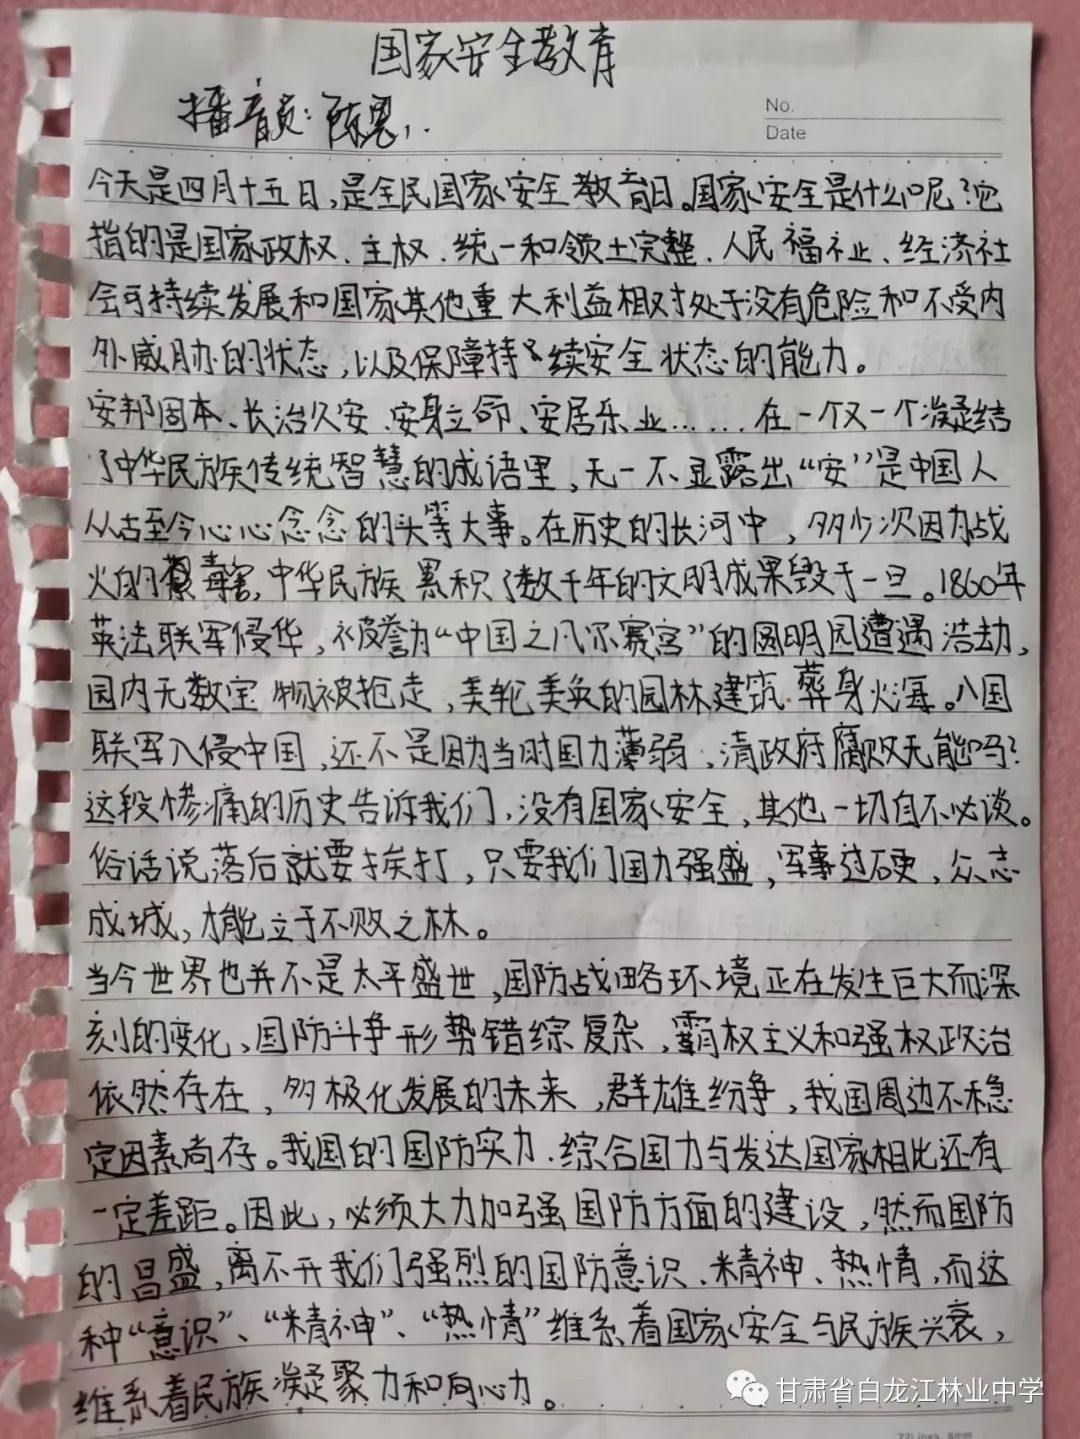 国家安全教育
播音员：陈
No.
Date
今天是四月十五日，是全民国家安全教育日。国家安全是什么呢？它
指的是国家政权、主权、统一和领土完整、人民福祉、经济社
会可持续发展和国家其他重大利益相对处于没有危险和不受内
外威胁的状态，以及保障持续安全状态的能力。
安邦固本、长治久安、安身立命、安居乐业……在一个又一个凝结
了中华民族传统智慧的成语里，无一不显露出“安”是中国人
从古至今心心念念的头等大事。在历史的长河中，多少次因为战
火的毒害，中华民族累积了数千年的文明成果毁于一旦。1860年
英法联军侵华，被誉为“中国之凡尔赛宫”的圆明园遭遇浩劫，
园内无数宝物被抢走，美轮美奂的园林建筑葬身火海。八国
联军入侵中国，还不是因为当时国力薄弱，清政府腐败无能吗？
这段惨痛的历史告诉我们，没有国家安全，其他一切自不必谈。
俗话说落后就要挨打，只要我们国力强盛，军事过硬，众志
成城，才能立于不败之林。
当今世界也并不是太平盛世，国防战略环境正在发生巨大而深
刻的变化，国防斗争形势错综复杂，霸权主义和强权政治
依然存在，多极化发展的未来，群雄纷争，我国周边不稳
定因素尚存。我国的国防实力、综合国力与发达国家相比还有
一定差距。因此，必须大力加强国防方面的建设，然而国防
的昌盛，离不开我们强烈的国防意识、精神、热情，而这
种“意识”、“精神”、“热情”维系着国家安全与民族兴衰，
维系着民族凝聚力和向心力。
甘肃省白龙江林业中学
22lines, 8mm